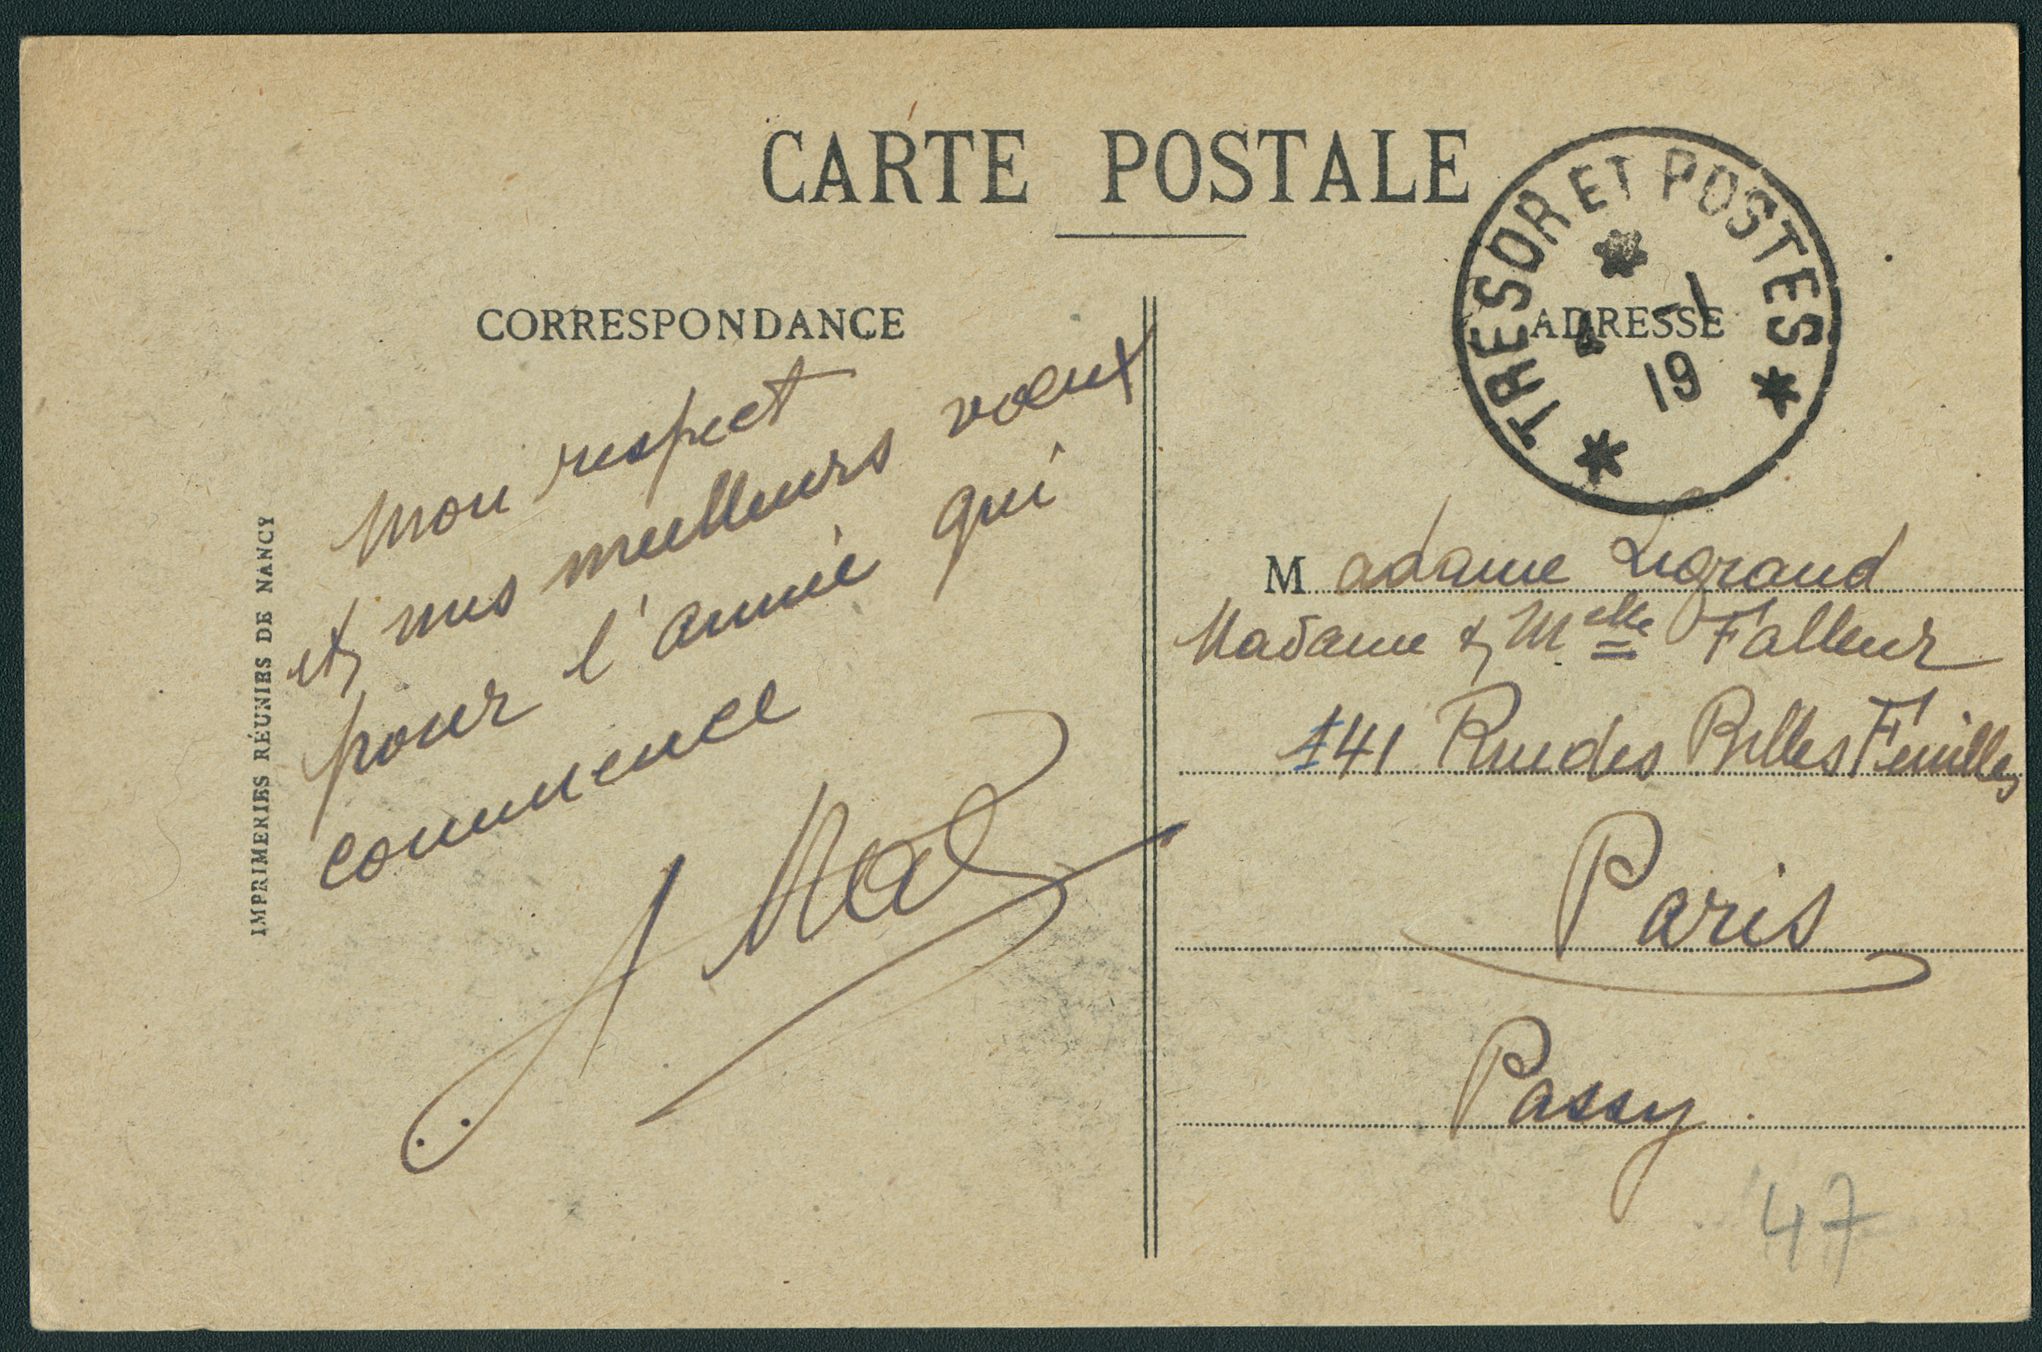 CARTE POSTALE
CORRESPONDANCE
ADRESSE
TRESOR ET POSTES
4 -1
19
IMPRIMERIES RÉUNIES DE NANCY
Mon respect
et mes meilleurs vœux
pour l'année qui
commence
Madame Legrand
Madame & Melle Falleur
141 Rue des Belles Feuilles
Paris
Passy.
47